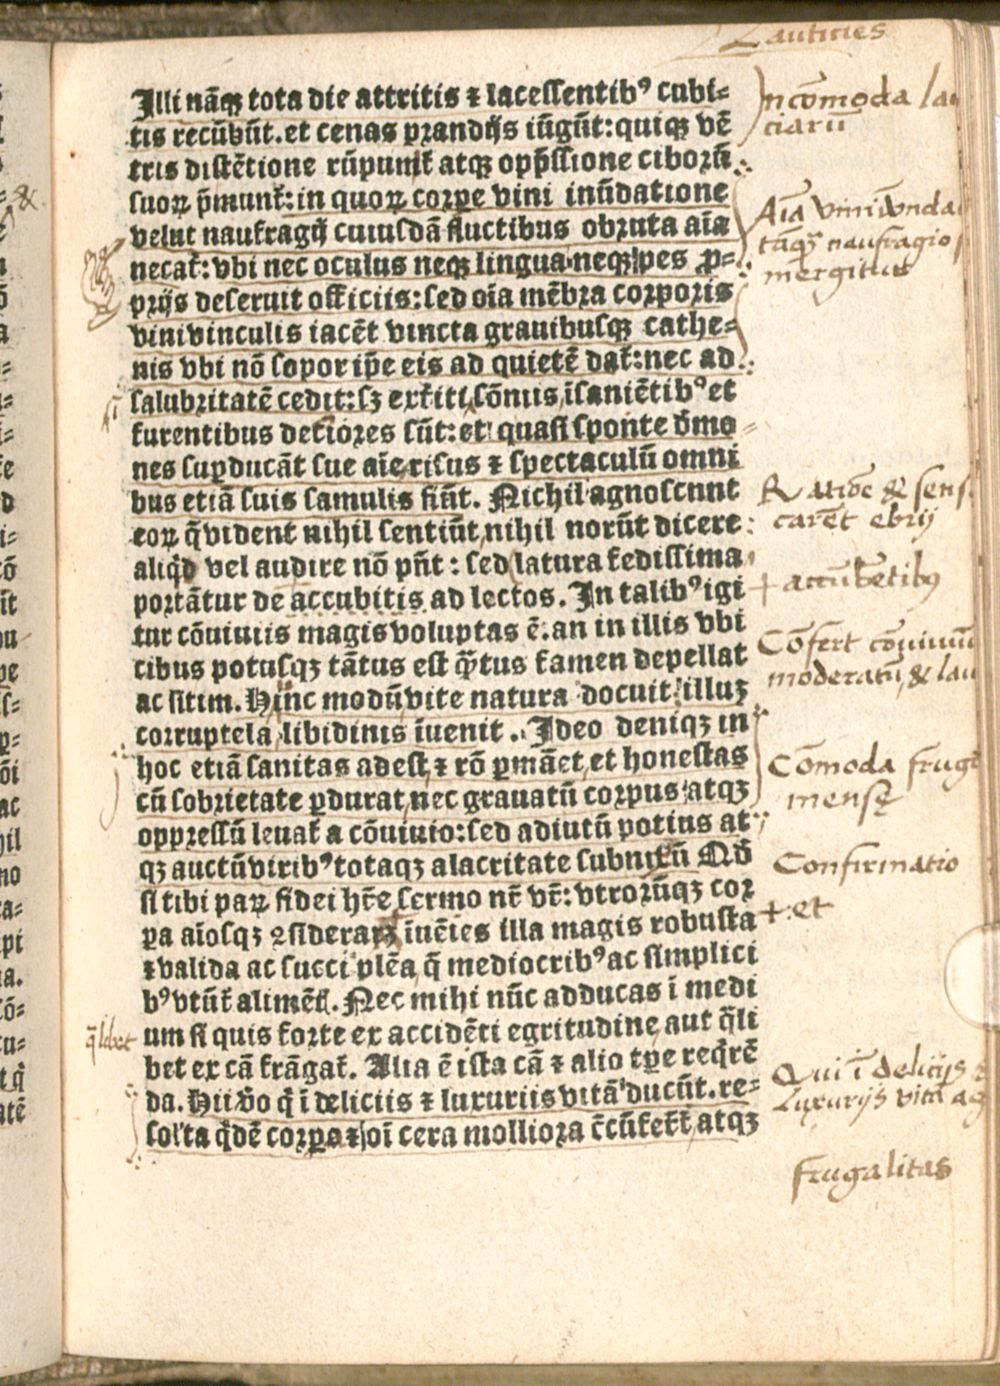 Lauticies
Illi nāqꝫ tota die attritis ⁊ lacessentibꝰ cubi⸗
tis recūbūt.et cenas prandijs iūgūt:quiqꝫ vē
tris distētione rūpunt̃ atqꝫ opp̄ssione ciborū
suoꝝ p̄munt̃:in quoꝝ corpe vini inūdatione
velut naufragij cuiusdā fluctibus obruta aīa
necat̃:vbi nec oculus neqꝫ lingua neqꝫ pes ꝓ⸗
prijs deseruit officiis:sed oīa mēbra corporis
vini vinculis iacēt vincta grauibusqꝫ cathe⸗
nis vbi nō sopor ip̄e eis ad quietē dat̃:nec ad
salubritatē cedit:sꝫ exr̃iti sōnus īsaniētibꝰ et
furentibus deteriores sūt:et quasi sponte dm̄o
nes suꝑducāt sue aīe risus ⁊ spectaculū omni
bus etiā suis famulis fiūt. Nichil agnoscunt
eoꝝ q̄ vident nihil sentiūt nihil norūt dicere
aliq̇d vel audire nō pn̄t : sed latura fedissima
portātur de accubitis ad lectos. In talibꝰ igi
tur cōuiuiis magis voluptas ē.an in illis vbi
cibus potusqꝫ tātus est q̄tus famen depellat
ac sitim. Hinc modū vite natura docuit illuꝫ
corruptela libidinis īuenit. Ideo deniqꝫ in
hoc etiā sanitas adest ⁊ rō ꝑmāet et honestas
cū sobrietate ꝑdurat nec grauatū corpus atqꝫ
oppressū leuat̃ a cōuiuio:sed adiutū potius at
qꝫ auctū viribꝰ totaqꝫ alacritate subnixū Nō
si tibi paꝝ fidei hr̄e sermo nr̄ vr̄: vtrorūqꝫ cor
pa aīosqꝫ ꝯsideraꝝ īuēies illa magis robusta
⁊ valida ac succi plēa q̄ mediocribꝰ ac simplici
bꝰ vtūt̃ alimēt̃. Nec mihi nūc adducas ī medi
um si quis forte ex accidēti egritudine aut q̄li
bet ex cā frāgat̃. Alia ē ista cā ⁊ alio tꝑe reqr̄ē
da. Hii v̄o q̄ ī deliciis ⁊ luxuriis vitā ducūt. re⸗
solu̓ta q̇dē corpora ⁊ oī cera molliora c̄cūfer̃t atqꝫ
ncōmoda lau
ciarū
Aīa vini vnda
tāqꝫ naufragio
mergitur
Ratiōe & sensu
carēt ebrij
+ accūbētibꝰ
Cōfert cōuiuiū
moderatū, & lau
Cōmoda frugi
mensę
Confirmatio
+ et
q̄libet
Qui ī delicijs
Luxurijs vitā ag
frugalitas